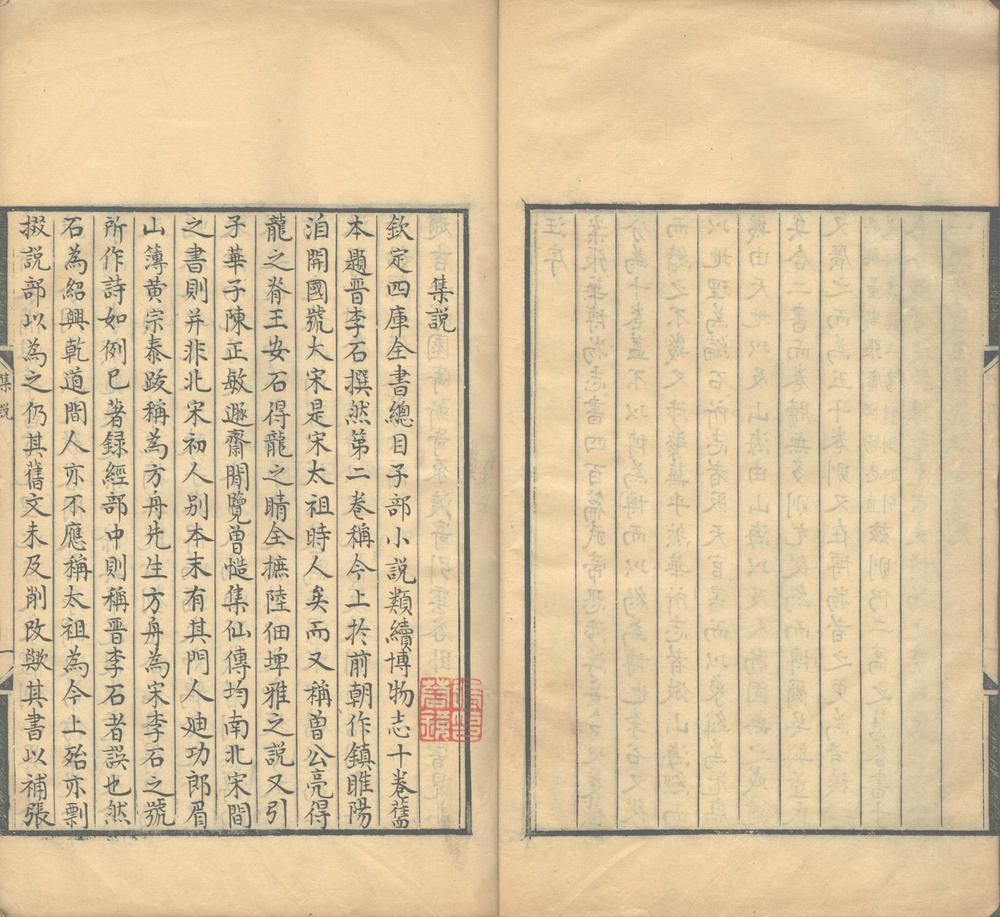 集說
欽定四庫全書總目子部小說類續博物志十卷舊
本題晉李石撰然第二卷稱今上於前朝作鎮睢陽
洎開國號大宋是宋太祖時人矣而又稱曾公亮得
龍之脊王安石得龍之睛全摭陸佃埤雅之說又引
子華子陳正敏遯齋閒覽曾慥集仙傳均南北宋間
之書則并非北宋初人別本末有其門人廸功郎眉
山簿黄宗泰跋稱為方舟先生方舟為宋李石之號
所作詩如例已著録經部中則稱晉李石者誤也然
石為紹興乾道間人亦不應稱太祖為今上殆亦剽
掇說部以為之仍其舊文未及削改歟其書以補張
集說
一